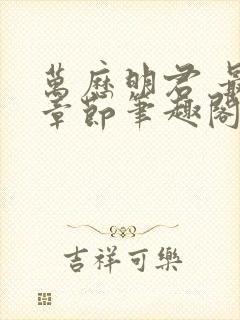 萬歷明君 最
章節筆趣閣
吉祥可樂